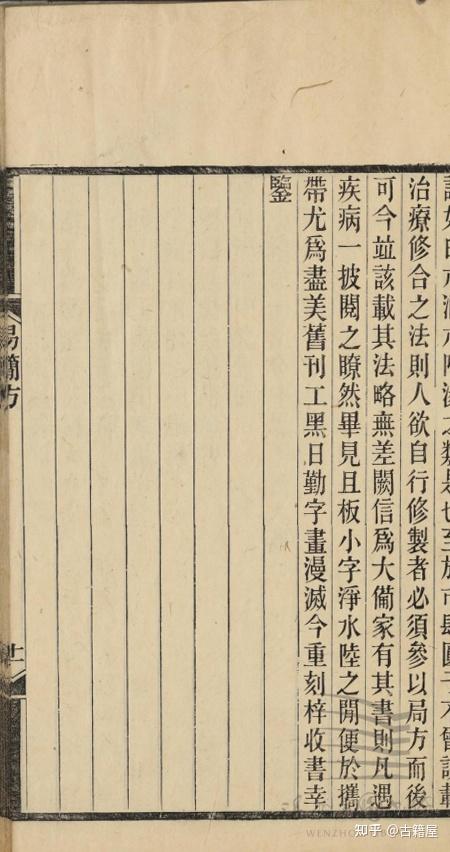 之類是也至於市肆圓子不曾詳載
治療修合之法則人欲自行修製者必須參以局方而後
可今竝該載其法略無差闕信爲大備家有其書則凡遇
疾病一披閱之瞭然畢見且板小字淨水陸之閒便於攜
帶尤爲盡美舊刊工黑日勤字畫漫滅今重刻梓收書幸
鑒
易簡方
WENZHO
知乎 @古籍屋